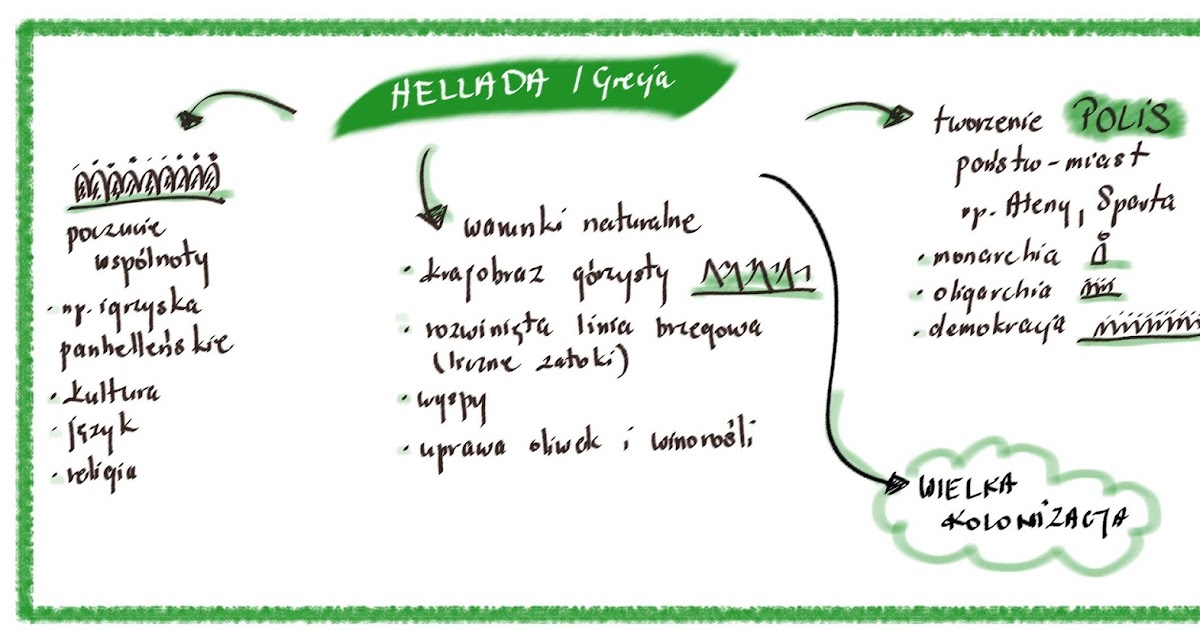 HELLADA / Grecja
poczucie
wspólnoty
• np. igrzyska
panhelleńskie
• kultura
• język
• religia
warunki naturalne
• krajobraz górzysty
• rozwinięta linia brzegowa
(liczne zatoki)
• wyspy
• uprawa oliwek i winorośli
tworzenie POLIS
państw-miast
np. Ateny, Sparta
• monarchia
• oligarchia
• demokracja
WIELKA
KOLONIZACJA